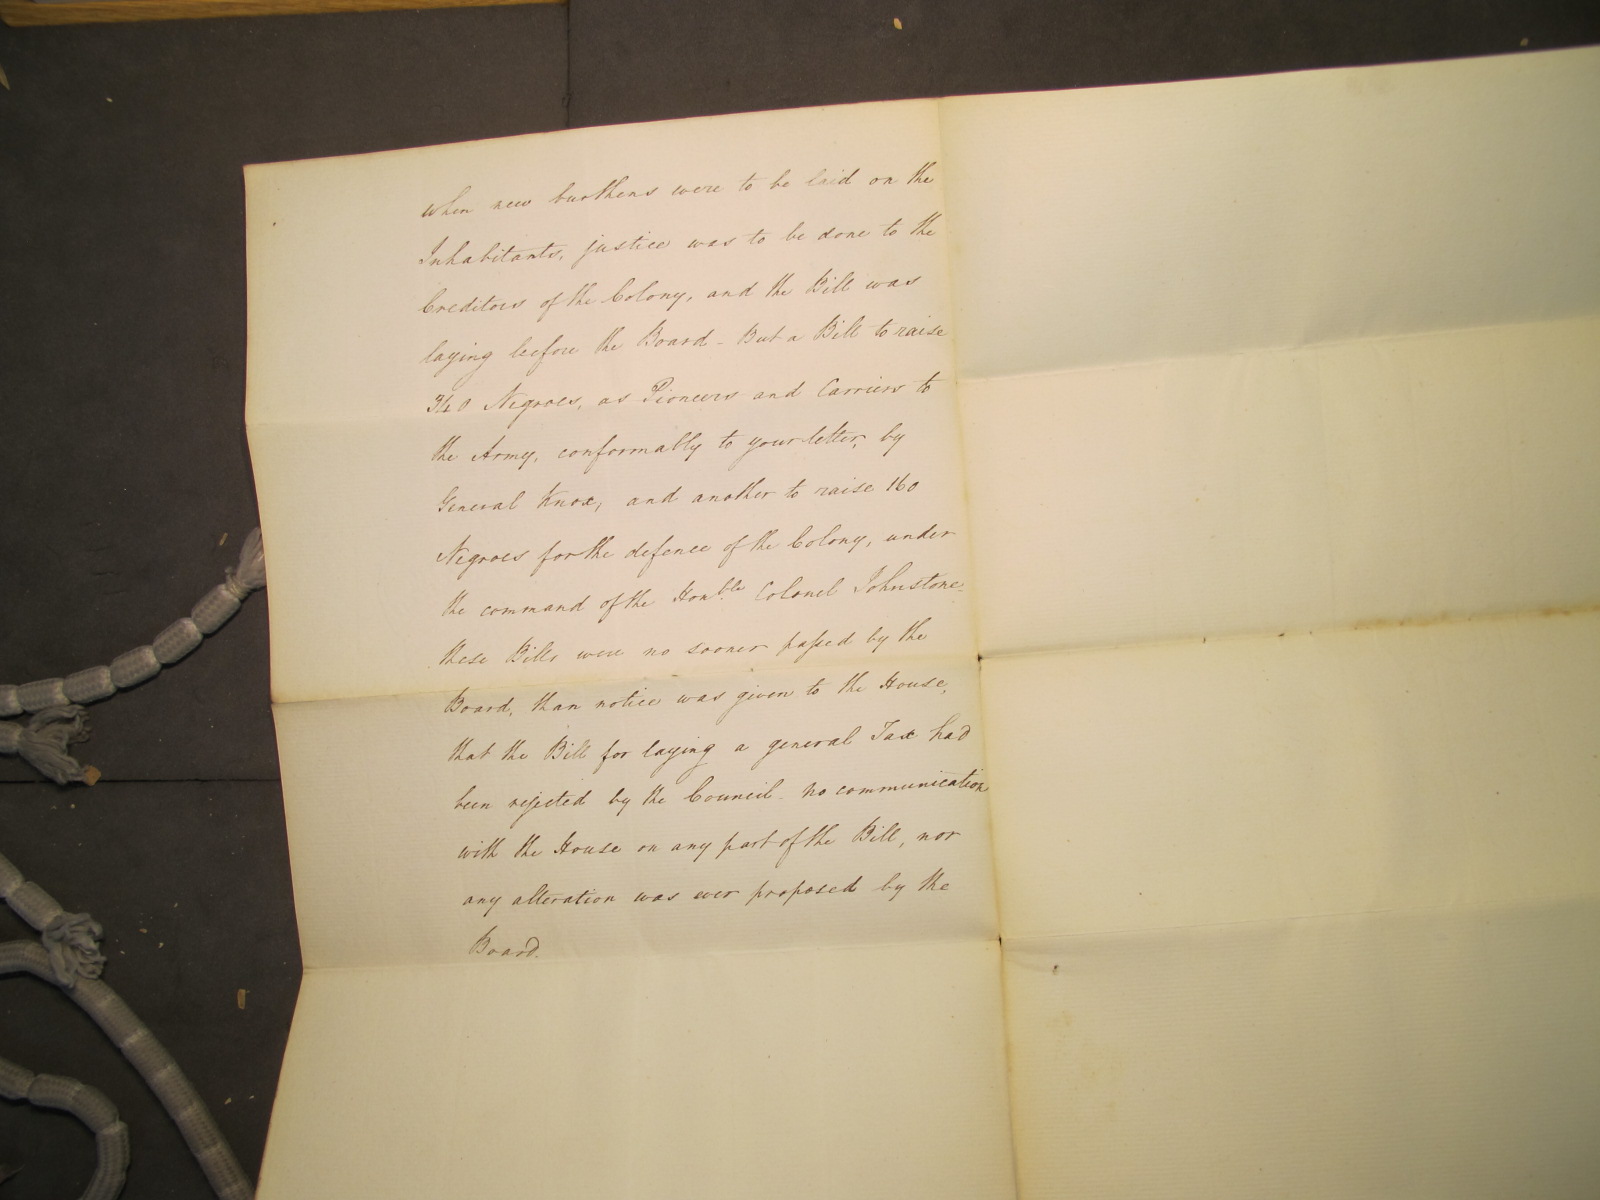 when new burthens were to be laid on the
Inhabitants, justice was to be done to the
Creditors of the Colony, and the Bill was
laying before the Board - But a Bill to raise
340 Negroes, as Pioneers and Carriers to
the Army, conformably to your letter, by
General Knox, and another to raise 160
Negroes for the defence of the Colony, under
the command of the Honble Colonel Johnstone-
these Bills were no sooner passed by the
Board, than notice was given to the House,
that the Bill for laying a general Tax had
been rejected by the Council - no communication
with the House on any part of the Bill, nor
any alteration was ever proposed by the
Board.